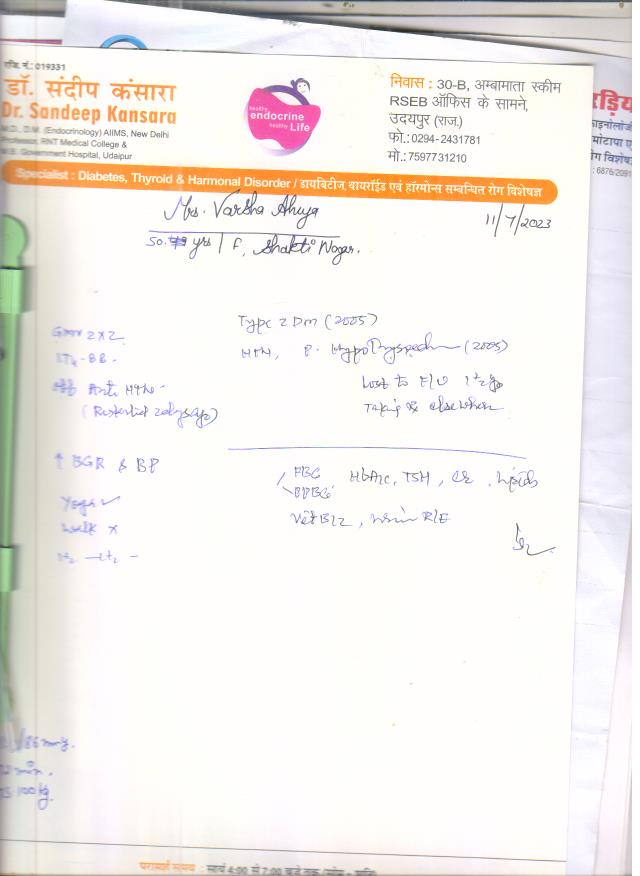 रजि. नं.: 019331
डॉ. संदीप कंसारा
Dr. Sandeep Kansara
M.D., D.M. (Endocrinology) AIIMS, New Delhi
RNT Medical College &
Government Hospital, Udaipur
healthy
endocrine
healthy Life
निवास : 30-B, अम्बामाता स्कीम
RSEB ऑफिस के सामने,
उदयपुर (राज.)
फो.:0294-2431781
मो.: 7597731210
Specialist : Diabetes, Thyroid & Harmonal Disorder / डायबिटीज, थायरॉईड एवं हॉरमोन्स सम्बन्धित रोग विशेषज्ञ
Mrs. Varsha Ahuja
11/7/2023
50 yrs / F, Shakti Nagar.
Type 2 DM (2005)
HTN, P. (2005)
Lost to F/U
Taking Rx elsewhere
2x2
off Anti HTN
↑ BGR & BP
Yoga ✓
Walk x
FBG
PPBG
HbA1c, TSH, Cr, Lipids
Vit B12, Urine R/E
/86 mmHg.
min.
100 kg.
परामर्श समय : सायं 4:00 से 7:00 बजे तक
रड़िय
मोटापा ए
ग विशेष
: 6876/2091